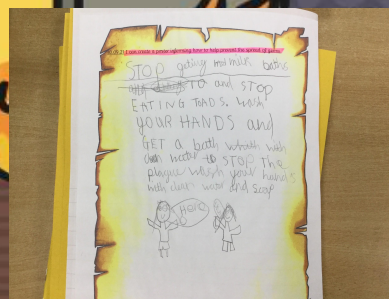 I can create a poster informing how to help prevent the spread of germs.
STOP getting milk baths
TO and STOP
EATING TOADS. Wash
YOUR HANDS and
GET a bath
water to STOP The
plague wash your hands
with clean water and soap